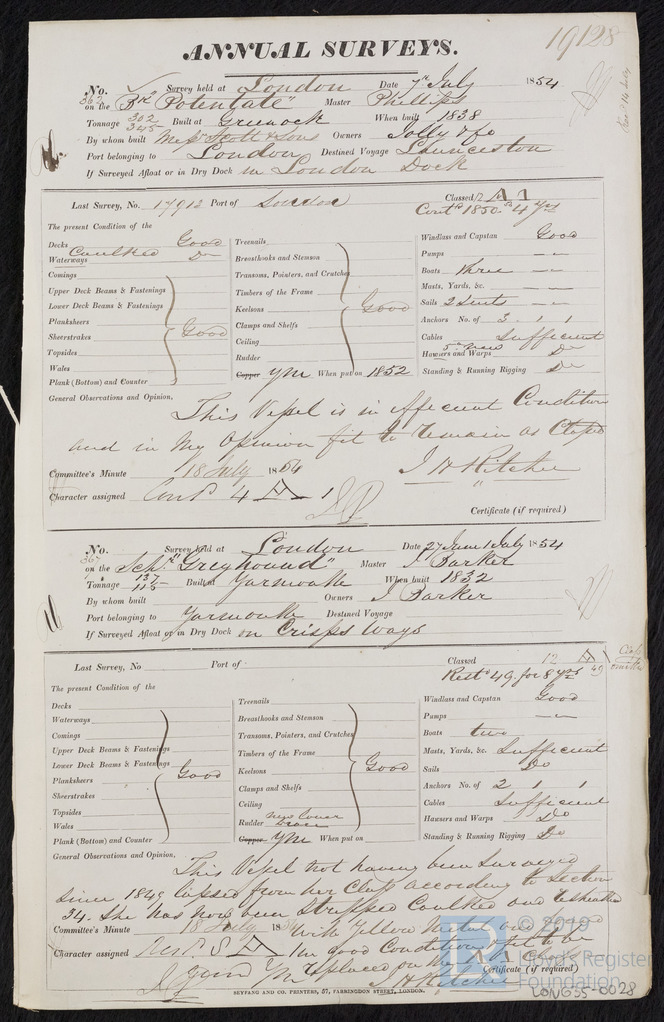 19128
ANNUAL SURVEYS.
No. 362 Survey held at London Date 7th July 1854
on the Bk "Potentate" Master Phillips
Tonnage 302 345 Built at Greenock When built 1838
By whom built Messrs Scott & Sons Owners Jolly & Co
Port belonging to London Destined Voyage Launceston
If Surveyed Afloat or in Dry Dock in London Dock
Last Survey, No. 17912 Port of London Classed 12 A 1
Contd 1850 4 yrs
The present Condition of the
Decks Good
Waterways Caulked Do
Comings
Upper Deck Beams & Fastenings
Lower Deck Beams & Fastenings
Planksheers
Sheerstrakes Good
Topsides
Wales
Plank (Bottom) and Counter
Treenails
Breasthooks and Stemson
Transoms, Pointers, and Crutches
Timbers of the Frame
Keelsons Good
Clamps and Shelfs
Ceiling
Rudder
Copper YM When put on 1852
Windlass and Capstan Good
Pumps
Boats three
Masts, Yards, &c.
Sails 2 Suits
Anchors No. of 3
Cables Sufficient
Hawsers and Warps Do
Standing & Running Rigging Do
General Observations and Opinion,
This Vessel is in efficient Condition
and in my Opinion fit to remain as Classed
Committee's Minute 18 July 1854
J H Ritchie
Character assigned Contd 4 A 1
Certificate (if required)
No. 367 Survey held at London Date 27 June 1 July 1854
on the Schr "Greyhound" Master J Barker
Tonnage 137 115 Built at Yarmouth When built 1832
By whom built Owners J Barker
Port belonging to Yarmouth Destined Voyage
If Surveyed Afloat or in Dry Dock on Crisps Ways
Last Survey, No Port of Classed 12 A 1
Restd 49 for 8 yrs
The present Condition of the
Decks
Waterways
Comings
Upper Deck Beams & Fastenings
Lower Deck Beams & Fastenings
Planksheers Good
Sheerstrakes
Topsides
Wales
Plank (Bottom) and Counter
Treenails
Breasthooks and Stemson
Transoms, Pointers, and Crutches
Timbers of the Frame
Keelsons Good
Clamps and Shelfs
Ceiling
Rudder new lower
Copper YM When put on
Windlass and Capstan Good
Pumps
Boats two
Masts, Yards, &c. Sufficient
Sails Do
Anchors No. of 2 1
Cables Sufficient
Hawsers and Warps Do
Standing & Running Rigging Do
General Observations and Opinion,
This Vessel not having been Surveyed
since 1849 lapsed from her Class according to Section
34. She has now been Stripped Caulked and resheathed
Committee's Minute 18 July 18
with Yellow Metal and
Character assigned A in good Condition fit to be
replaced on the
J H Ritchie
Certificate (if required)
SEYFANG AND CO. PRINTERS, 57, FARRINGDON STREET, LONDON.
© 2019
Lloyd's Register
Foundation
LON635-0628